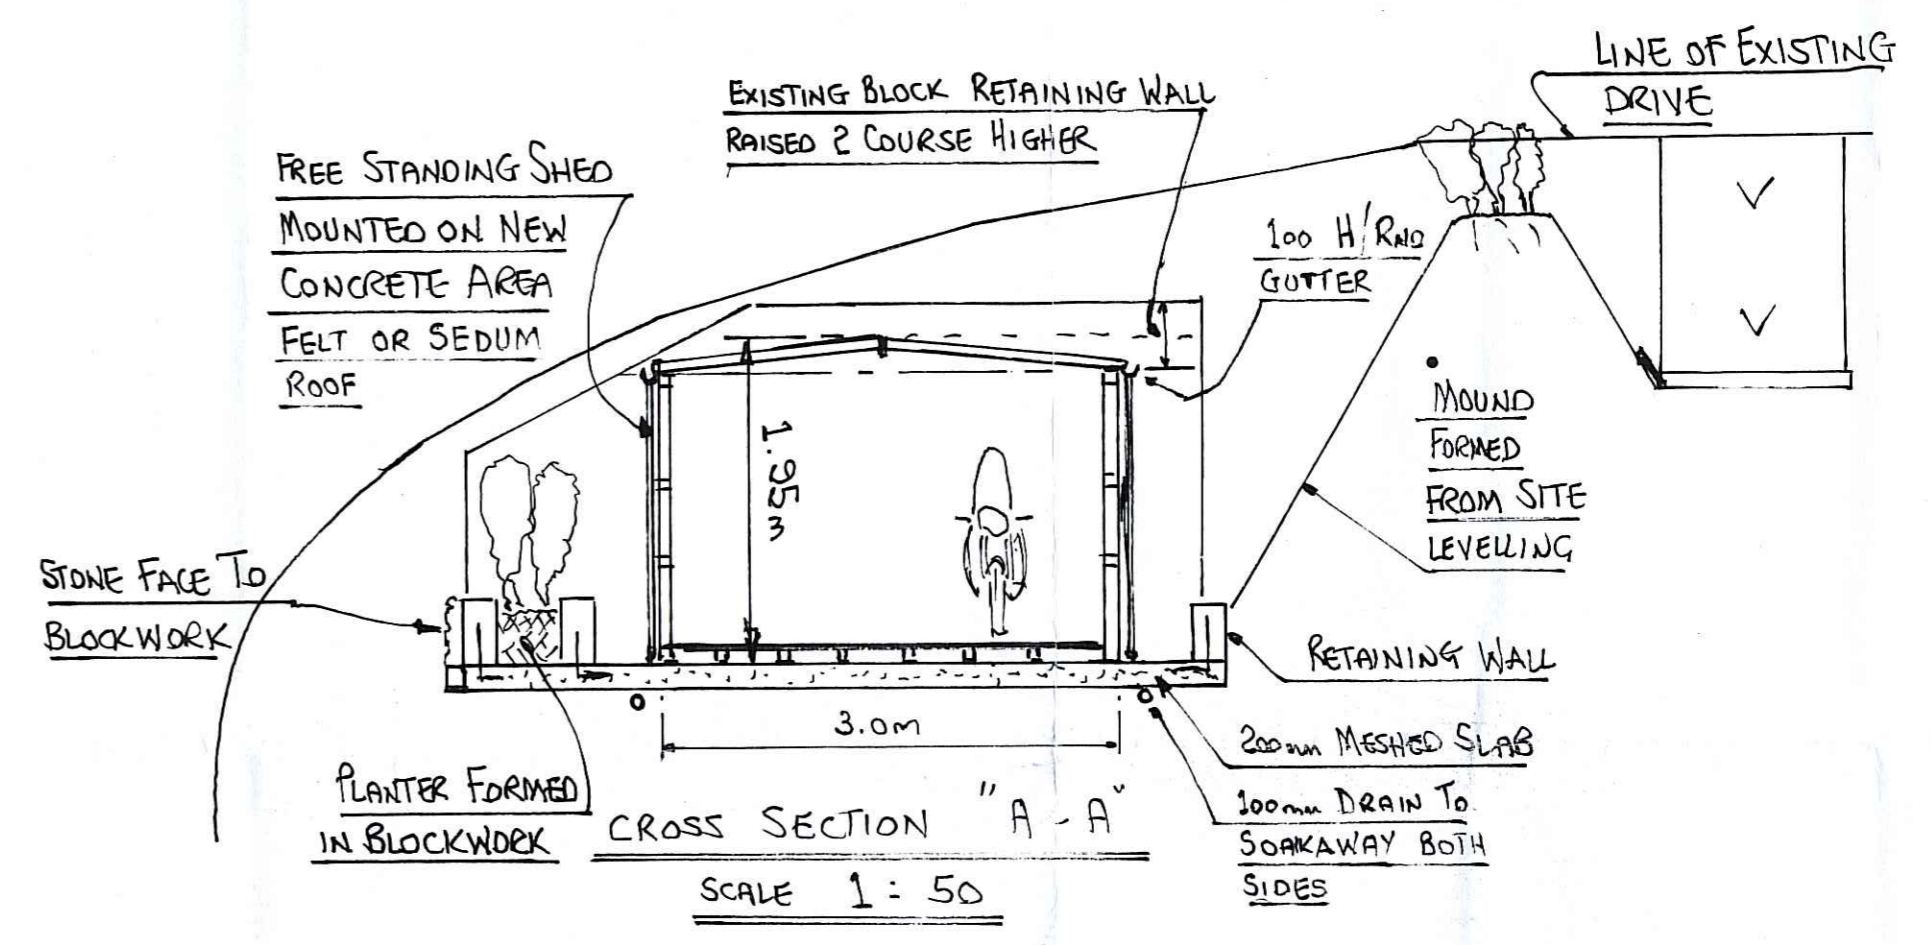 LINE OF EXISTING
DRIVE
EXISTING BLOCK RETAINING WALL
RAISED 2 COURSE HIGHER
FREE STANDING SHED
MOUNTED ON NEW
CONCRETE AREA
FELT OR SEDUM
ROOF
100 H/RND
GUTTER
MOUND
FORMED
FROM SITE
LEVELLING
1.95m
STONE FACE TO
BLOCKWORK
RETAINING WALL
3.0m
200mm MESHED SLAB
100mm DRAIN TO
SOAKAWAY BOTH
SIDES
PLANTER FORMED
IN BLOCKWORK
CROSS SECTION "A-A"
SCALE 1:50